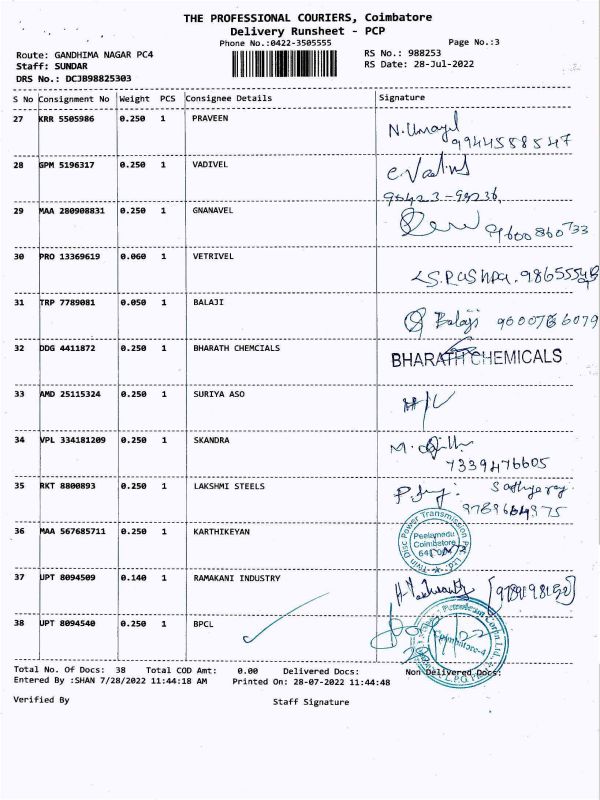 THE PROFESSIONAL COURIERS, Coimbatore
Delivery Runsheet - PCP
Phone No.:0422-3505555
Page No.:3
Route: GANDHIMA NAGAR PC4
RS No.: 988253
Staff: SUNDAR
RS Date: 28-Jul-2022
DRS No.: DCJB98825303
S No Consignment No Weight PCS Consignee Details Signature
27 KRR 5505986 0.250 1 PRAVEEN
9944558547
28 GPM 5196317 0.250 1 VADIVEL
29 MAA 280908831 0.250 1 GNANAVEL
9600860733
30 PRO 13369619 0.060 1 VETRIVEL
31 TRP 7789081 0.050 1 BALAJI
Balaji
32 DDG 4411872 0.250 1 BHARATH CHEMCIALS
BHARATH CHEMICALS
33 AMD 25115324 0.250 1 SURIYA ASO
34 VPL 334181209 0.250 1 SKANDRA
7339476605
35 RKT 8800893 0.250 1 LAKSHMI STEELS
36 MAA 567685711 0.250 1 KARTHIKEYAN
Twin Disc Power Transmission Pvt. Ltd.
Peelamedu
Coimbatore
37 UPT 8094509 0.140 1 RAMAKANI INDUSTRY
38 UPT 8094540 0.250 1 BPCL
Coimbatore-4
Total No. Of Docs: 38 Total COD Amt: 0.00 Delivered Docs: Non Delivered Docs:
Entered By :SHAN 7/28/2022 11:44:18 AM Printed On: 28-07-2022 11:44:48
Verified By Staff Signature